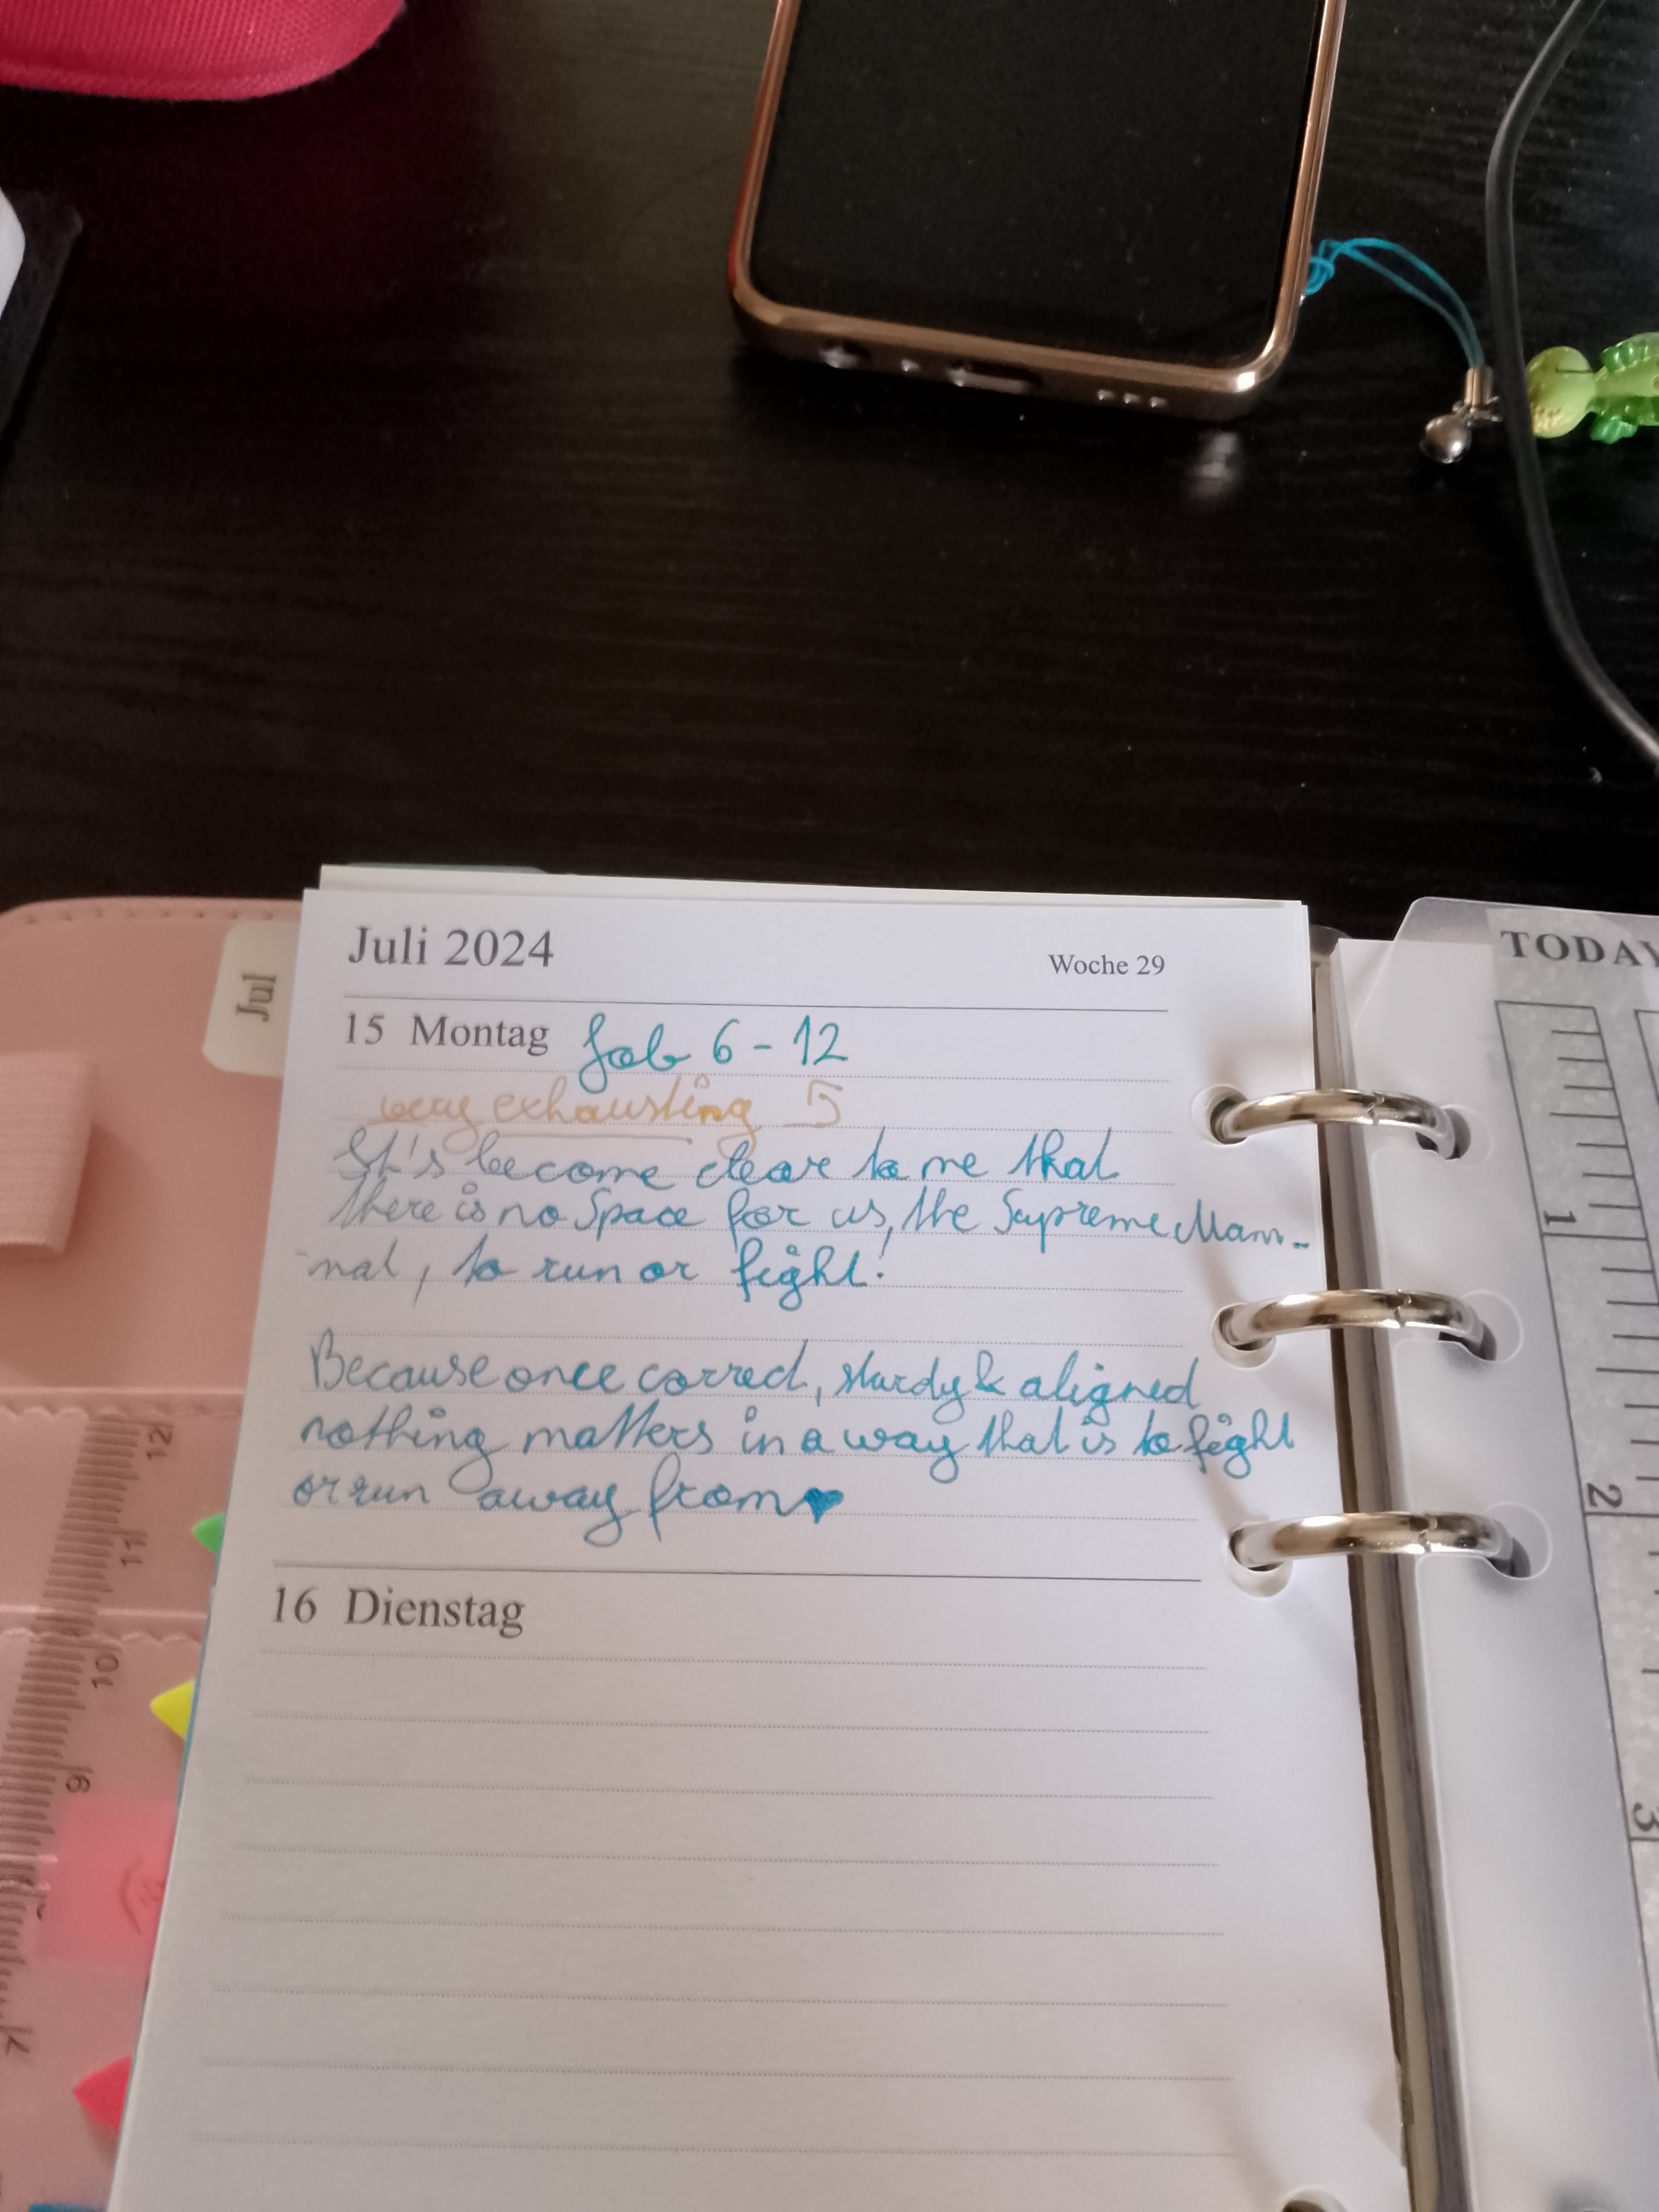 Juli 2024
Woche 29
Jul
15 Montag Job 6 - 12
very exhausting
It's become clear to me that
there is no Space for us, the Supreme Mam-
mal, to run or fight!
Because once correct, sturdy & aligned
nothing matters in a way that is to fight
or run away from
16 Dienstag
TODAY
1
2
3
12
11
10
9